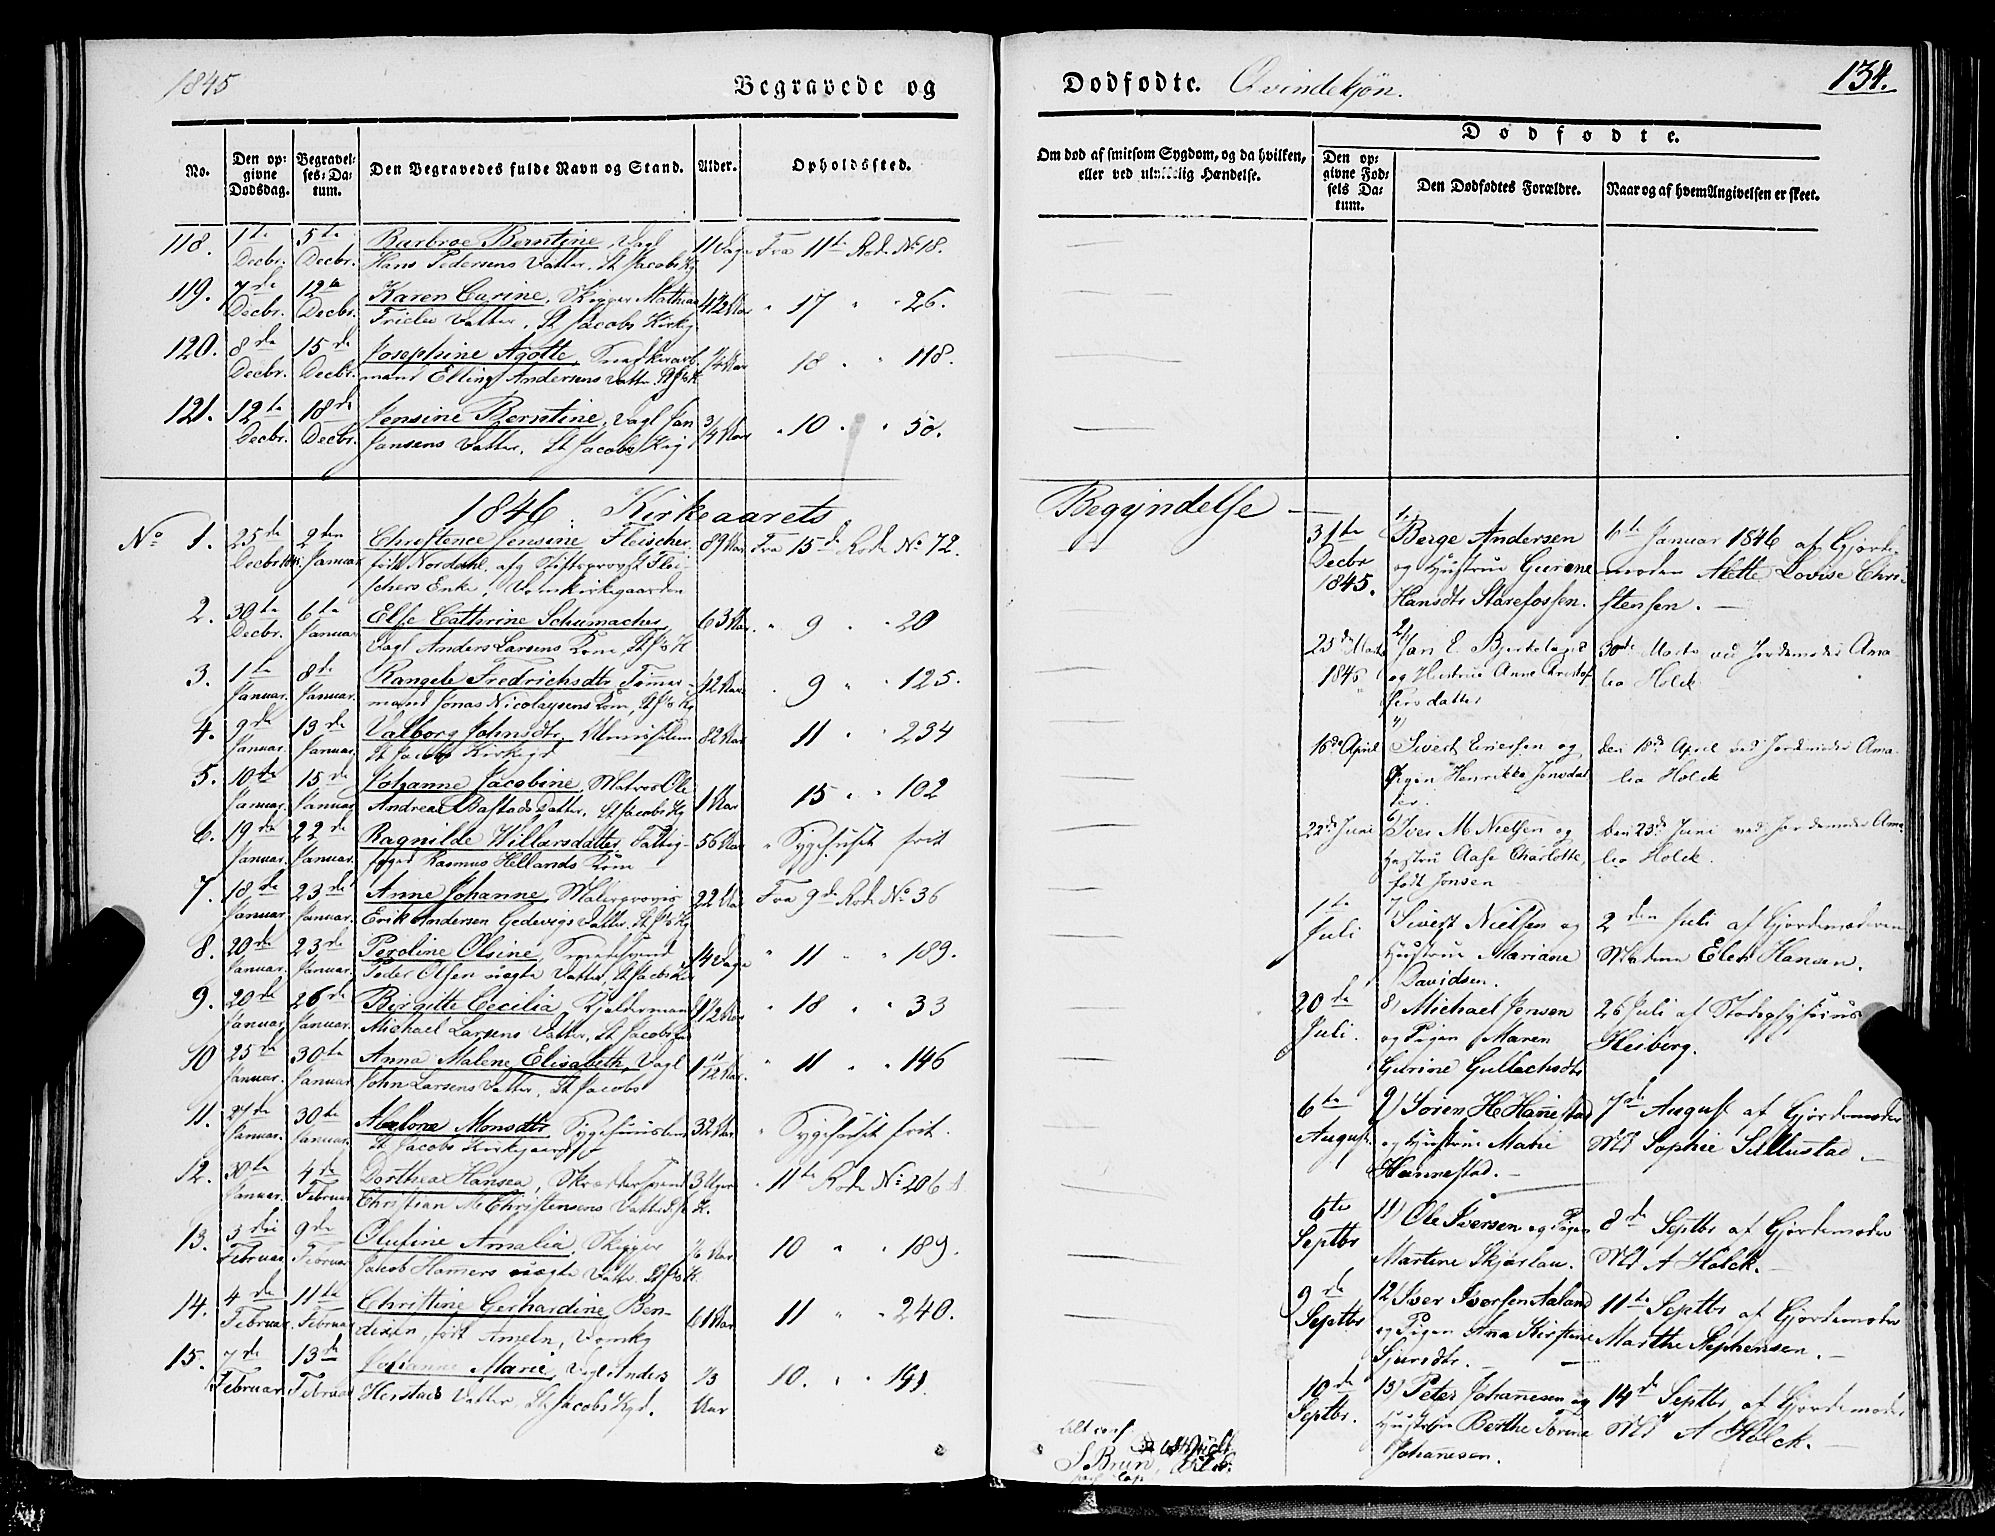 1845
Begravede og
Dødfødte. Qvindekjøn.
134.
No.
Den opgivne Dødsdag.
Begravelses-Datum.
Den Begravedes fulde Navn og Stand.
Alder.
Opholdssted.
Om død af smitsom Sygdom, og da hvilken, eller ved ulykkelig Hændelse.
Dødfødte.
Den opgivne Fødsels Datum.
Den Dødfødtes Forældre.
Naar og af hvem Angivelsen er skeet.
118. 1te Decbr. 5te Decbr. Barbroe Berntine, Dagl
Hans Pedersens Datter. St Jacobs Kg 11 Dage Fra 11te Rode No 18.
119. 7de Decbr. 12te Decbr. Karen Carine, Skipper Mathias
Datter, St Jacobs Kirkg " 17 " " 26.
120. 8de Decbr. 15de Decbr. Josephine Agotte, Snedkerarb
mand Elling Andersens Datter. 1/4 Aar 18 " 118.
121. 12te Decbr. 18de Decbr. Jensine Berntine, Dagl Jan
Jansens Datter, St Jacobs Kirkg 3/4 Aar " 10 " " 50.
1846 Kirkeaarets Begyndelse
No 1. 25de Decbr 1845 2den Januar Christence Jensine Fleischer
født Nordahl, afg Stiftsprovst Fleischers
Enke, Domkirkegaarden 89 Aar Fra 15de Rode No 72.
2. 30te Decbr. 6te Januar Else Cathrine Schumacher,
Dagl Anders Larsens Kone, 63 Aar " 9 " " 20
3. 1te Januar. 8de Januar. Rangele Fredrichsdtr, Tømmermand
Jonas Nicolaysens Kone, 42 Aar " 9 " " 125.
4. 9de Januar. 13de Januar. Valborg Johnsdtr, Almislem
St Jacobs Kirkegd 82 Aar 11 " " 234
5. 10de Januar. 15de Januar. Johanne Jacobine, Matros Ole
Andreas Bastads Datter. St Jacobs Kg 1 Aar 15 " " 102
6. 19de Januar. 22de Januar. Ragnilde Willarsdatter, Fattigfoged
Rasmus Hellands Kone 56 Aar " Sygehuset frit
7. 18de Januar. 23de Januar. Anne Johanne, Malerprovis
Erik Andersen Gedevigs Datter. 22 Aar Fra 9de Rode No 36
8. 20de Januar. 23de Januar. Peroline Olsine, Smedesvend
Peder Olsen uægte Datter, St Jacobs Kg 14 Dage " 11 " " 189.
9. 20de Januar. 26de Januar. Birgitte Cecilia, Kjelderman
Michael Larsens Datter, St Jacobs " 18 " " 33
10 25de Januar. 30te Januar. Anna Malene Elisabeth, Dagl
John Larsens Datter, St Jacobs " 11 " " 146
11. 27de Januar. 30te Januar. Abelone Monsdtr Sygehuuslem
St Jacobs Kirkegaard 32 Aar " Sygehuset frit.
12. 4de Februar Dorthea Hansea, Skræddersvend
Christian M Christensens Datter 3 Uger " 11te Rode No 206 A
13. 3die Februar. 9de Februar Olufine Amalia, Skipper
Jacob Hamers uægte Datter 10 " " 189.
14. 4de Februar. 11te Februar. Christine Gerhardine Bendixen,
født Ameln, Domkg 61 Aar 11 " " 240.
15. 7de Februar. 13de Februar Johanne Marie, Dagl Anders
Herstads Datter St Jacobs Kgd. 1/3 Aar 10. " "
31te Decbr 1845. 1, Berge Andersen
og Hustrue Gurine
Hansdtr Starefossen. 6te Januar 1846 af Gjordemoder
Alette Lovise Christensen.
25de Marts 1846 2, Jan E. Bjerkelager
og Hustrue Anne Christofersdatter 30te Marts ved Jordemoder Amalia Holck
16de April 4) Sivert Eriersen og
Pigen Henrikke Jensdatter. den 18de April ved Jordemoder Amalia Holck
22de Juni 6) Iver M Nielsen og
Hustru Aase Charlotte,
født Jonsen Den 23de Juni ved Jordemoder Amalia Holck.
1te Juli 7, Sivert Nielsen og
Hustrue Mariane
Davidsen. 2den Juli af Gjordemoderen
Madme Elen Hansen.
20de Juli. 8) Michael Jensen
og Pigen Maren
Gurine Gullachsdtr 26 Juli af Stadsphysicus
Heiberg.
6te August. 9) Soren H Hannestad
og Hustrue Marie
Hannestad. 7de August af Gjordemoder
Md Sophie Sellustad
6te Septbr 11) Ole Iversen og Pigen
Martine Skjørlau. 8de Septbr af Gjordemoder
Md A Holck.
9de Septbr 12, Iver Iversen Aaland
og Pigen Ana Kirstine
Sjursdtr. 11te Septbr af Gjordemoder
Marthe Stephensen.
10de Septbr. 13) Peter Johanesen og
Hustrue Berthe Torine
Johanesen. 14de Septbr af Gjordemoder
Md A Holck.
S. Brun,